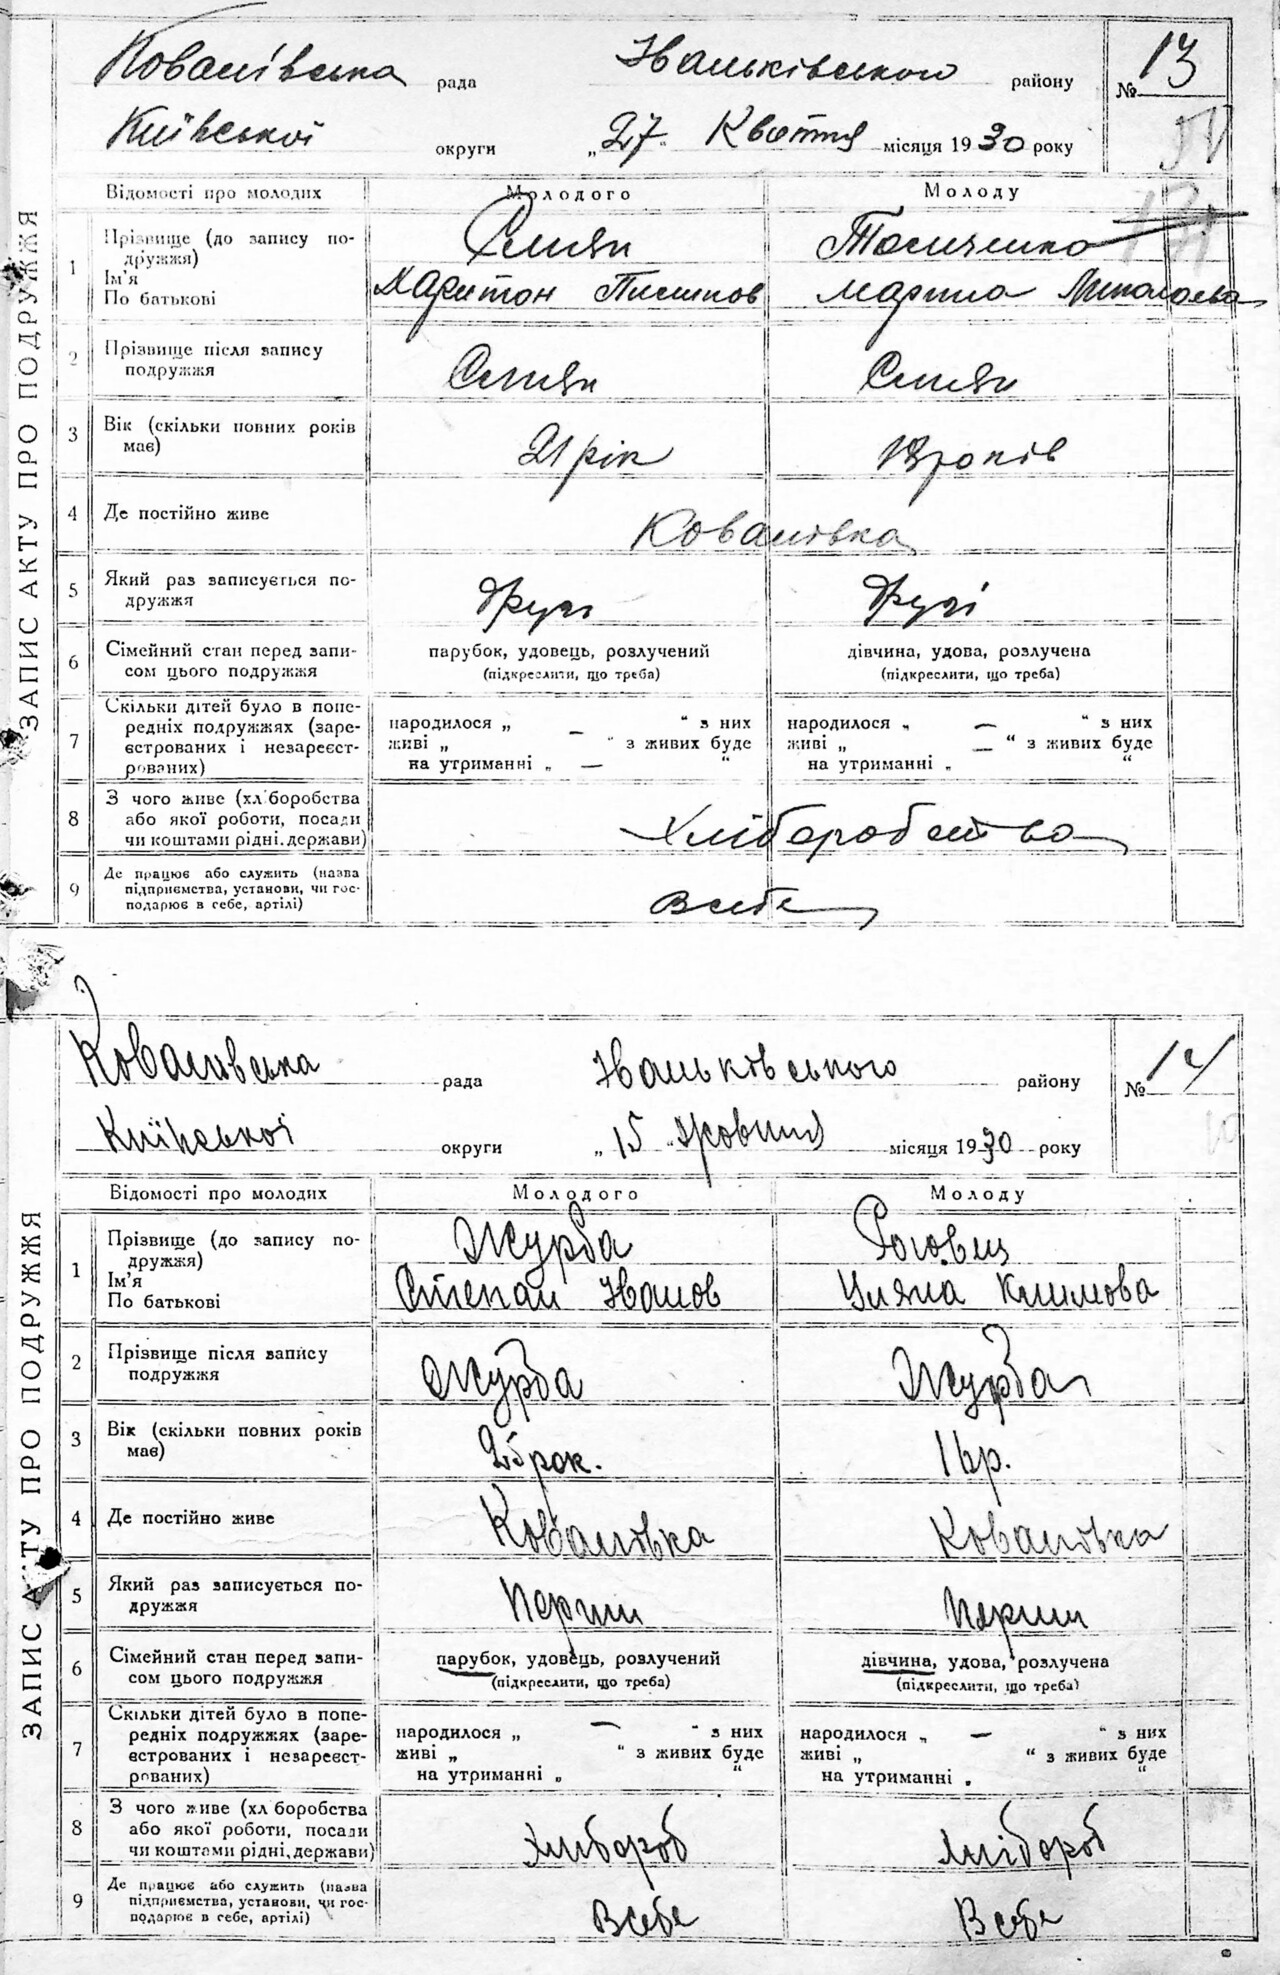 ЗАПИС АКТУ ПРО ПОДРУЖЖЯ
Ковалівська рада Іваньківського району № 13
Київської округи „27“ Квітня місяця 1930 року
Відомості про молодих Молодого Молоду
1 Прізвище (до запису по-
дружжя)
Ім'я Харитон
По батькові Марина Миколаєва
2 Прізвище після запису
подружжя
3 Вік (скільки повних років 21 рік
має) років
4 Де постійно живе Ковалівка
5 Який раз записується по-
дружжя другі другі
6 Сімейний стан перед запи- парубок, удовець, розлучений дівчина, удова, розлучена
сом цього подружжя (підкреслити, що треба) (підкреслити, що треба)
7 Скільки дітей було в попе-
редніх подружжях (заре- народилося „ — “ з них народилося „ — “ з них
єстрованих і незареєст- живі „ “ з живих буде живі „ — “ з живих буде
рованих) на утриманні „ — “ на утриманні „ “
8 З чого живе (хл боробства
або якої роботи, посади Хліборобство
чи коштами рідні, держави)
9 Де працює або служить (назва
підприємства, установи, чи гос- Всебе
подарює в себе, артілі)
ЗАПИС АКТУ ПРО ПОДРУЖЖЯ
Ковалівська рада Іваньківського району № 14
Київської округи „15 Жовтня місяця 1930 року
Відомості про молодих Молодого Молоду
1 Прізвище (до запису по- Журба Роговец
дружжя)
Ім'я Степан Іванов Уляна Климова
По батькові
2 Прізвище після запису Журба Журба
подружжя
3 Вік (скільки повних років рок. р.
має)
4 Де постійно живе Ковалівка Ковалівка
5 Який раз записується по- Перши Перши
дружжя
6 Сімейний стан перед запи- парубок, удовець, розлучений дівчина, удова, розлучена
сом цього подружжя (підкреслити, що треба) (підкреслити, що треба)
7 Скільки дітей було в попе-
редніх подружжях (заре- народилося „ — “ з них народилося „ — “ з них
єстрованих і незареєст- живі „ “ з живих буде живі „ “ з живих буде
рованих) на утриманні „ “ на утриманні „ “
8 З чого живе (хл боробства
або якої роботи, посади Хлібороб Хлібороб
чи коштами рідні, держави)
9 Де працює або служить (назва
підприємства, установи, чи гос- Всебе Всебе
подарює в себе, артілі)